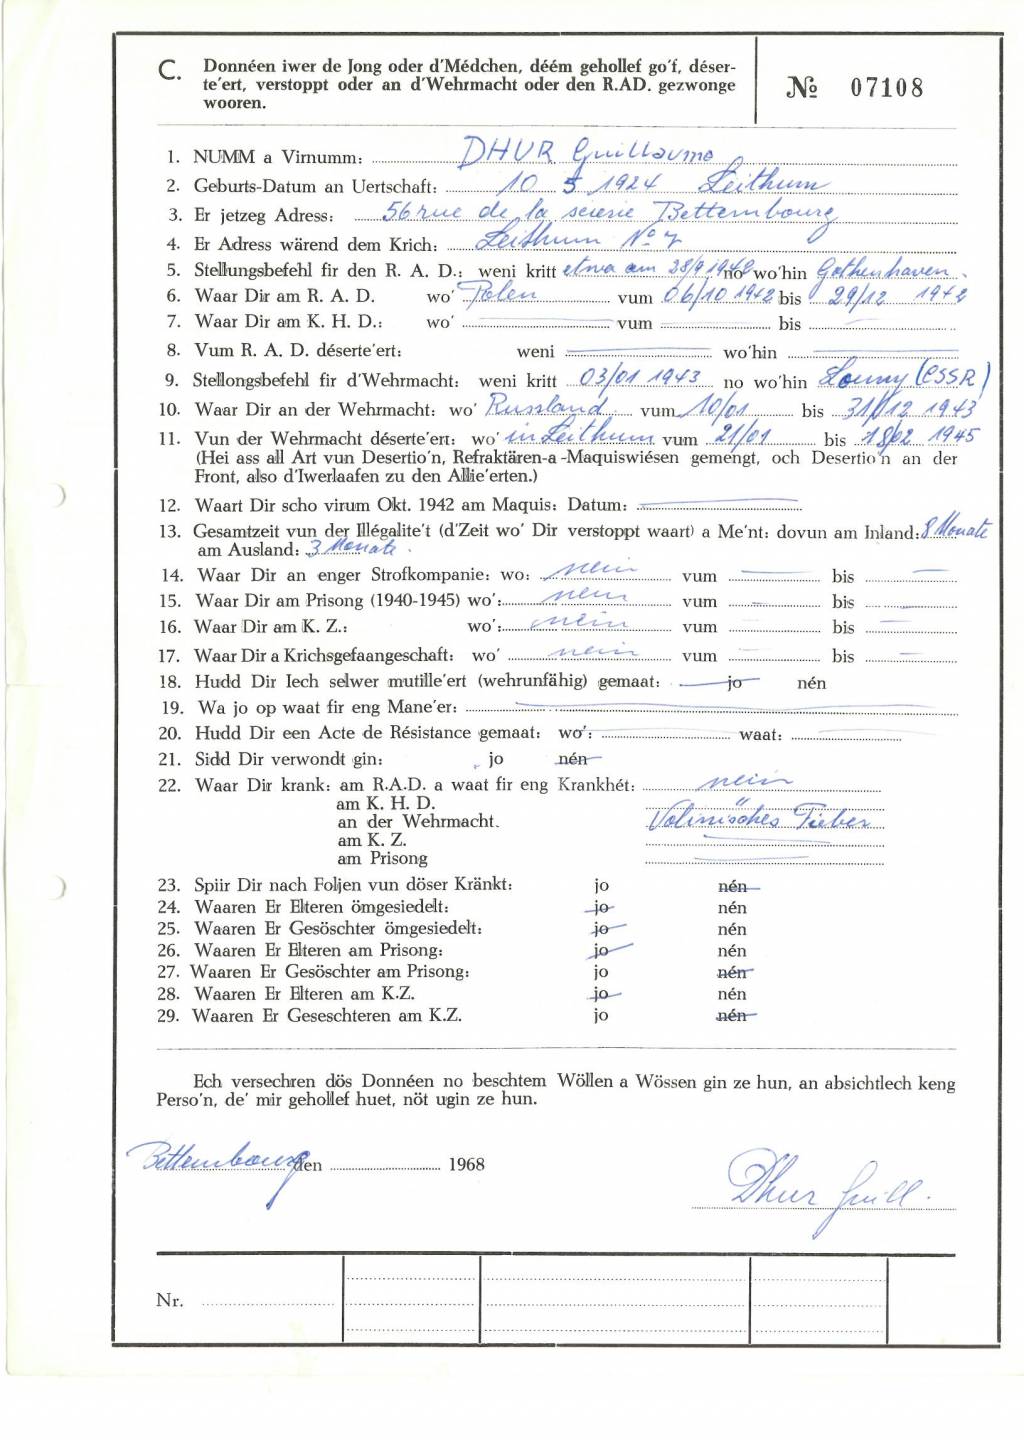 C. Donnéen iwer de Jong oder d'Médchen, déém gehollef go'f, déser-
te'ert, verstoppt oder an d'Wehrmacht oder den R.AD. gezwonge
wooren.
№ 07108
1. NUMM a Virnumm: DHUR Guillaume
2. Geburts-Datum an Uertschaft: 10 5 1924 Leithum
3. Er jetzeg Adress: 56 rue de la scierie Bettembourg
4. Er Adress wärend dem Krich: Leithum No 7
5. Stellungsbefehl fir den R. A. D.: weni kritt etwa am 28/9 1942 no wo'hin Gothenhaven.
6. Waar Dir am R. A. D. wo' Polen vum 06/10 1942 bis 29/12 1942
7. Waar Dir am K. H. D.: wo' vum bis
8. Vum R. A. D. déserte'ert: weni wo'hin
9. Stellongsbefehl fir d'Wehrmacht: weni kritt 03/01 1943 no wo'hin Louny (CSSR)
10. Waar Dir an der Wehrmacht: wo' Russland vum 10/01 bis 31/12 1943
11. Vun der Wehrmacht déserte'ert: wo' in Leithum vum 21/01 bis 18/02 1945
(Hei ass all Art vun Desertio'n, Refraktären-a-Maquiswiésen gemengt, och Desertio'n an der
Front, also d'Iwerlaafen zu den Allie'erten.)
12. Waart Dir scho virum Okt. 1942 am Maquis: Datum:
13. Gesamtzeit vun der Illégalite't (d'Zeit wo' Dir verstoppt waart) a Me'nt: dovun am Inland: 8 Monate
am Ausland: 3 Monate.
14. Waar Dir an enger Strofkompanie: wo: nein vum bis
15. Waar Dir am Prisong (1940-1945) wo': nein vum bis
16. Waar Dir am K. Z.: wo': nein vum bis
17. Waar Dir a Krichsgefaangeschaft: wo' nein vum bis
18. Hudd Dir Iech selwer mutille'ert (wehrunfähig) gemaat: jo nén
19. Wa jo op waat fir eng Mane'er:
20. Hudd Dir een Acte de Résistance gemaat: wo': waat:
21. Sidd Dir verwondt gin: jo nén
22. Waar Dir krank: am R.A.D. a waat fir eng Krankhét: nein
am K. H. D. "
an der Wehrmacht. Volinisches Fieber
am K. Z.
am Prisong
23. Spiir Dir nach Foljen vun döser Kränkt: jo nén
24. Waaren Er Elteren ömgesiedelt: jo nén
25. Waaren Er Gesöschter ömgesiedelt: jo nén
26. Waaren Er Elteren am Prisong: jo nén
27. Waaren Er Gesöschter am Prisong: jo nén
28. Waaren Er Elteren am K.Z. jo nén
29. Waaren Er Geseschteren am K.Z. jo nén
Ech versechren dös Donnéen no beschtem Wöllen a Wössen gin ze hun, an absichtlech keng
Perso'n, de' mir gehollef huet, nöt ugin ze hun.
Bettembourg den 1968
Dhur Guill.
Nr.